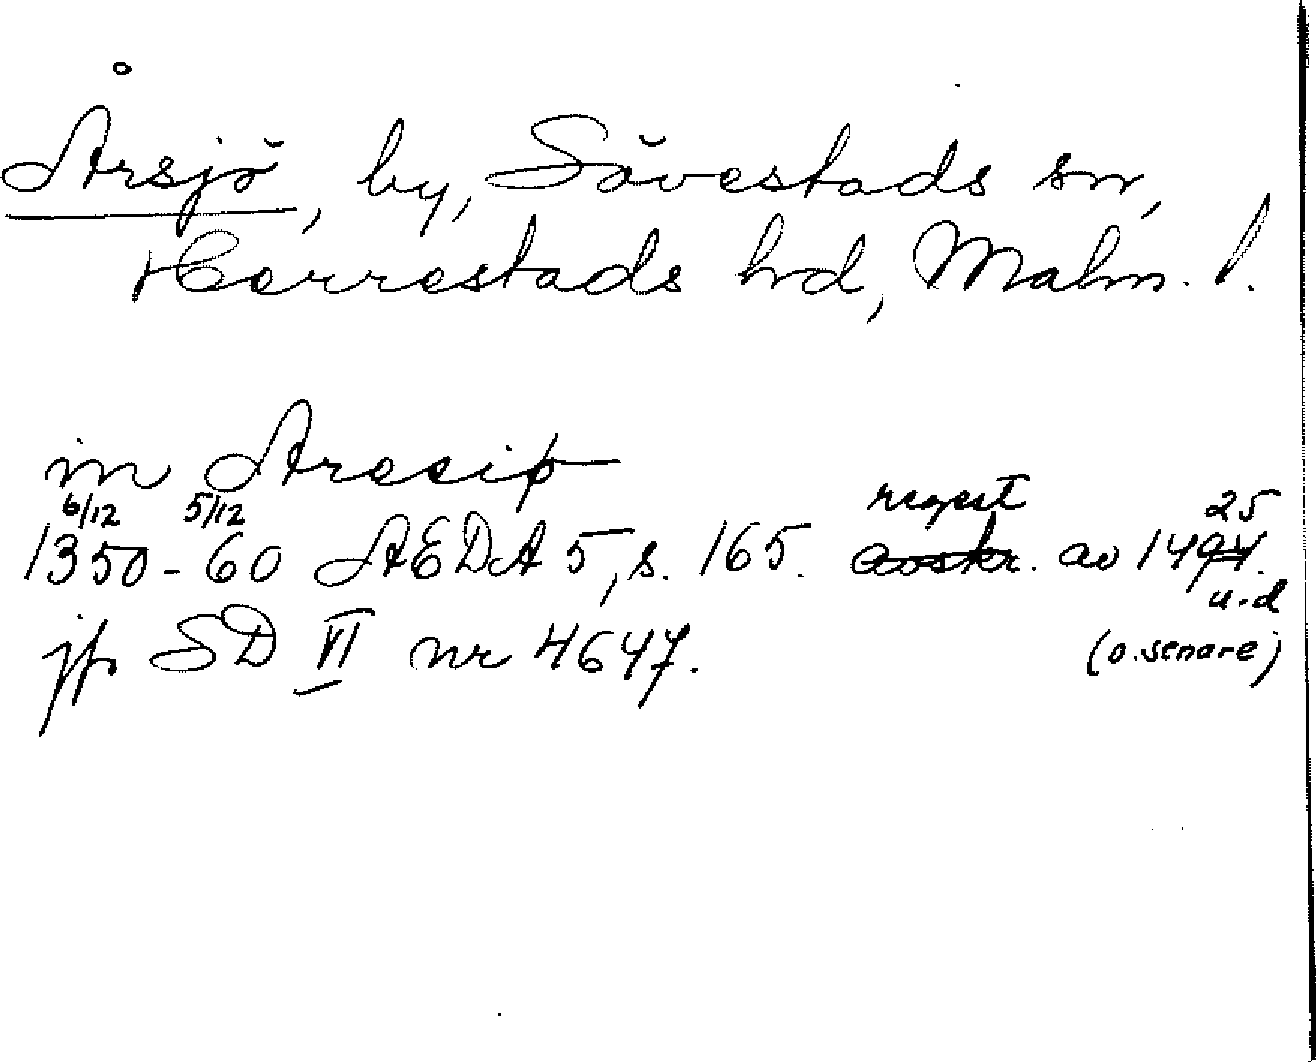 Årsjö, by, Sövestads sn,
Herrestads hd, Malm. l.
in Aresiø
6/12 5/12 regest 25
1350-60 ÆDA 5, s. 165. avskr. av 1494.
u-d
jfr SD VI nr 4647. (o. senare)